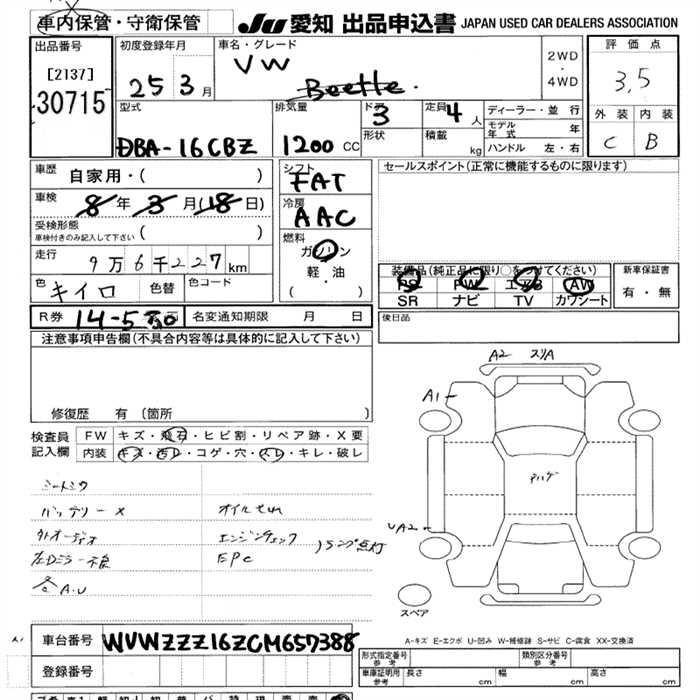 車内保管・守衛保管 JU 愛知 出品申込書 JAPAN USED CAR DEALERS ASSOCIATION
出品番号 [2137] 30715
初度登録年月 25 3月
車名・グレード VW Beetle
2WD・4WD
評価点 3.5
外装 内装
C B
型式 DBA-16CBZ
排気量 1200 cc
ドア 3
形状
定員 4人
積載 kg
ディーラー・並行
モデル年式 年
ハンドル 左・右
車歴 自家用・( )
車検 8年3月(18日)
受検形態 車検付きのみ記入して下さい ( )
走行 9万6千227km
色 キイロ 色替 色コード
シフト FAT
冷房 AAC
燃料 ガソリン 軽・油 ( ・ )
セールスポイント(正常に機能するものに限ります)
装備品(純正品に限り○をつけてください)
PS PW エアB AW
SR ナビ TV カワシート
新車保証書 有・無
R券 14-530 名変通知期限 月 日
後日品
注意事項申告欄(不具合内容等は具体的に記入して下さい)
修復歴 有 (箇所 )
検査員記入欄 FW キズ・飛石・ヒビ割・リペア跡・X要
内装 キズ・汚レ・コゲ・穴・スレ・キレ・破レ
バッテリー X
外オーディオ エンジンチェック ランプ点灯
左Dミラー不良 EPC
各A.U
A2 スリA
A1
アハゲ
UA2
スペア
A-キズ E-エクボ U-凹み W-補修跡 S-サビ C-腐食 XX-交換済
A1
車台番号 WVWZZZ16ZCM657388
登録番号
形式指定番号 参考 類別区分番号 参考
車庫証明用 参考 長さ 幅 高さ